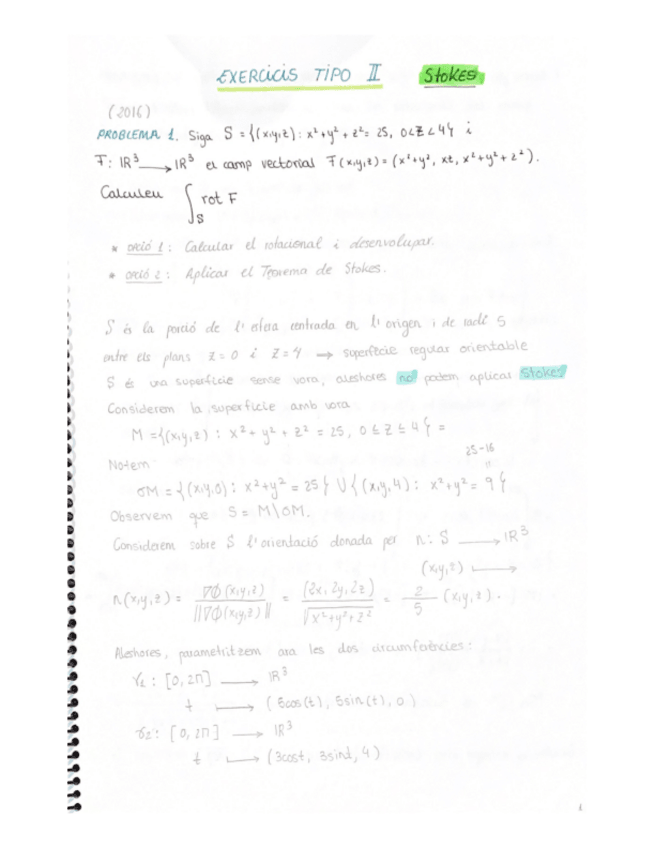 EXERCICIS TIPO II Stokes
(2016)
PROBLEMA 1. Siga S = {(x,y,z) : x² + y² + z² = 25, 0<z<4} i
F : IR³ → IR³ el camp vectorial F(x,y,z) = (x²+y², xz, x²+y²+z²).
Calculeu ∫_S rot F
* opció 1 : Calcular el rotacional i desenvolupar.
* opció 2 : Aplicar el Teorema de Stokes.
S és la porció de l'esfera centrada en l'origen i de radi 5
entre els plans z = 0 i z = 4 → superfície regular orientable
S és una superfície sense vora, aleshores no podem aplicar Stokes
Considerem la superfície amb vora
M = {(x,y,z) : x² + y² + z² = 25, 0 ≤ z ≤ 4} =
25-16
Notem
∂M = {(x,y,0) : x²+y² = 25} ∪ {(x,y,4) : x²+y² = 9}
Observem que S = M\∂M.
Considerem sobre S l'orientació donada per n : S → IR³
(x,y,z) ↦
n(x,y,z) = ∇Φ(x,y,z) / ||∇Φ(x,y,z)|| = (2x, 2y, 2z) / √x²+y²+z² = 2/5 (x,y,z).
Aleshores, parametritzem ara les dos circumferències :
γ₁ : [0, 2π] → IR³
t ↦ (5cos(t), 5sin(t), 0)
γ₂ : [0, 2π] → IR³
t ↦ (3cost, 3sint, 4)